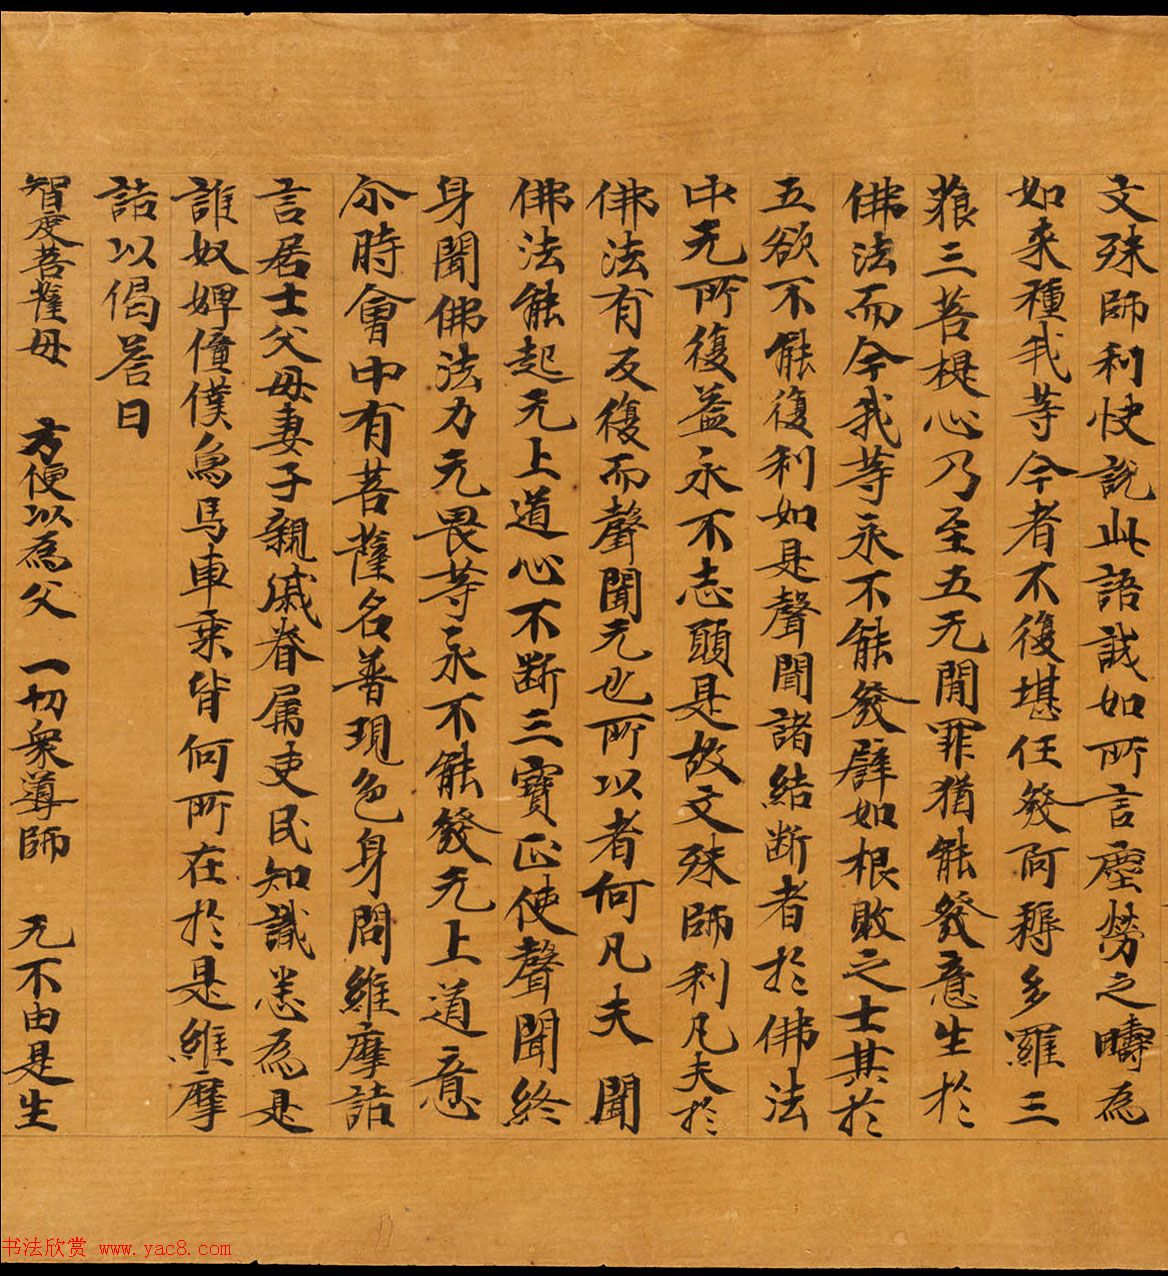 文殊師利快説此語誠如所言塵勞之疇為
如来種我等今者不復堪任發阿耨多羅三
藐三菩提心乃至五无間罪猶能發意生於
佛法而今我等永不能發譬如根敗之士其於
五欲不能復利如是聲聞諸結断者於佛法
中无所復益永不志願是故文殊師利凡夫於
佛法有反復而聲聞无也所以者何凡夫聞
佛法能起无上道心不断三寶正使聲聞終
身聞佛法力无畏等永不能發无上道意
尒時會中有菩薩名普現色身問維摩詰
言居士父母妻子親戚眷属吏民知識悉為是
誰奴婢僮僕象馬車乗皆何所在於是維摩
詰以偈荅曰
智度菩薩母 方便以為父 一切衆導師 无不由是生
书法欣赏 www.yac8.com